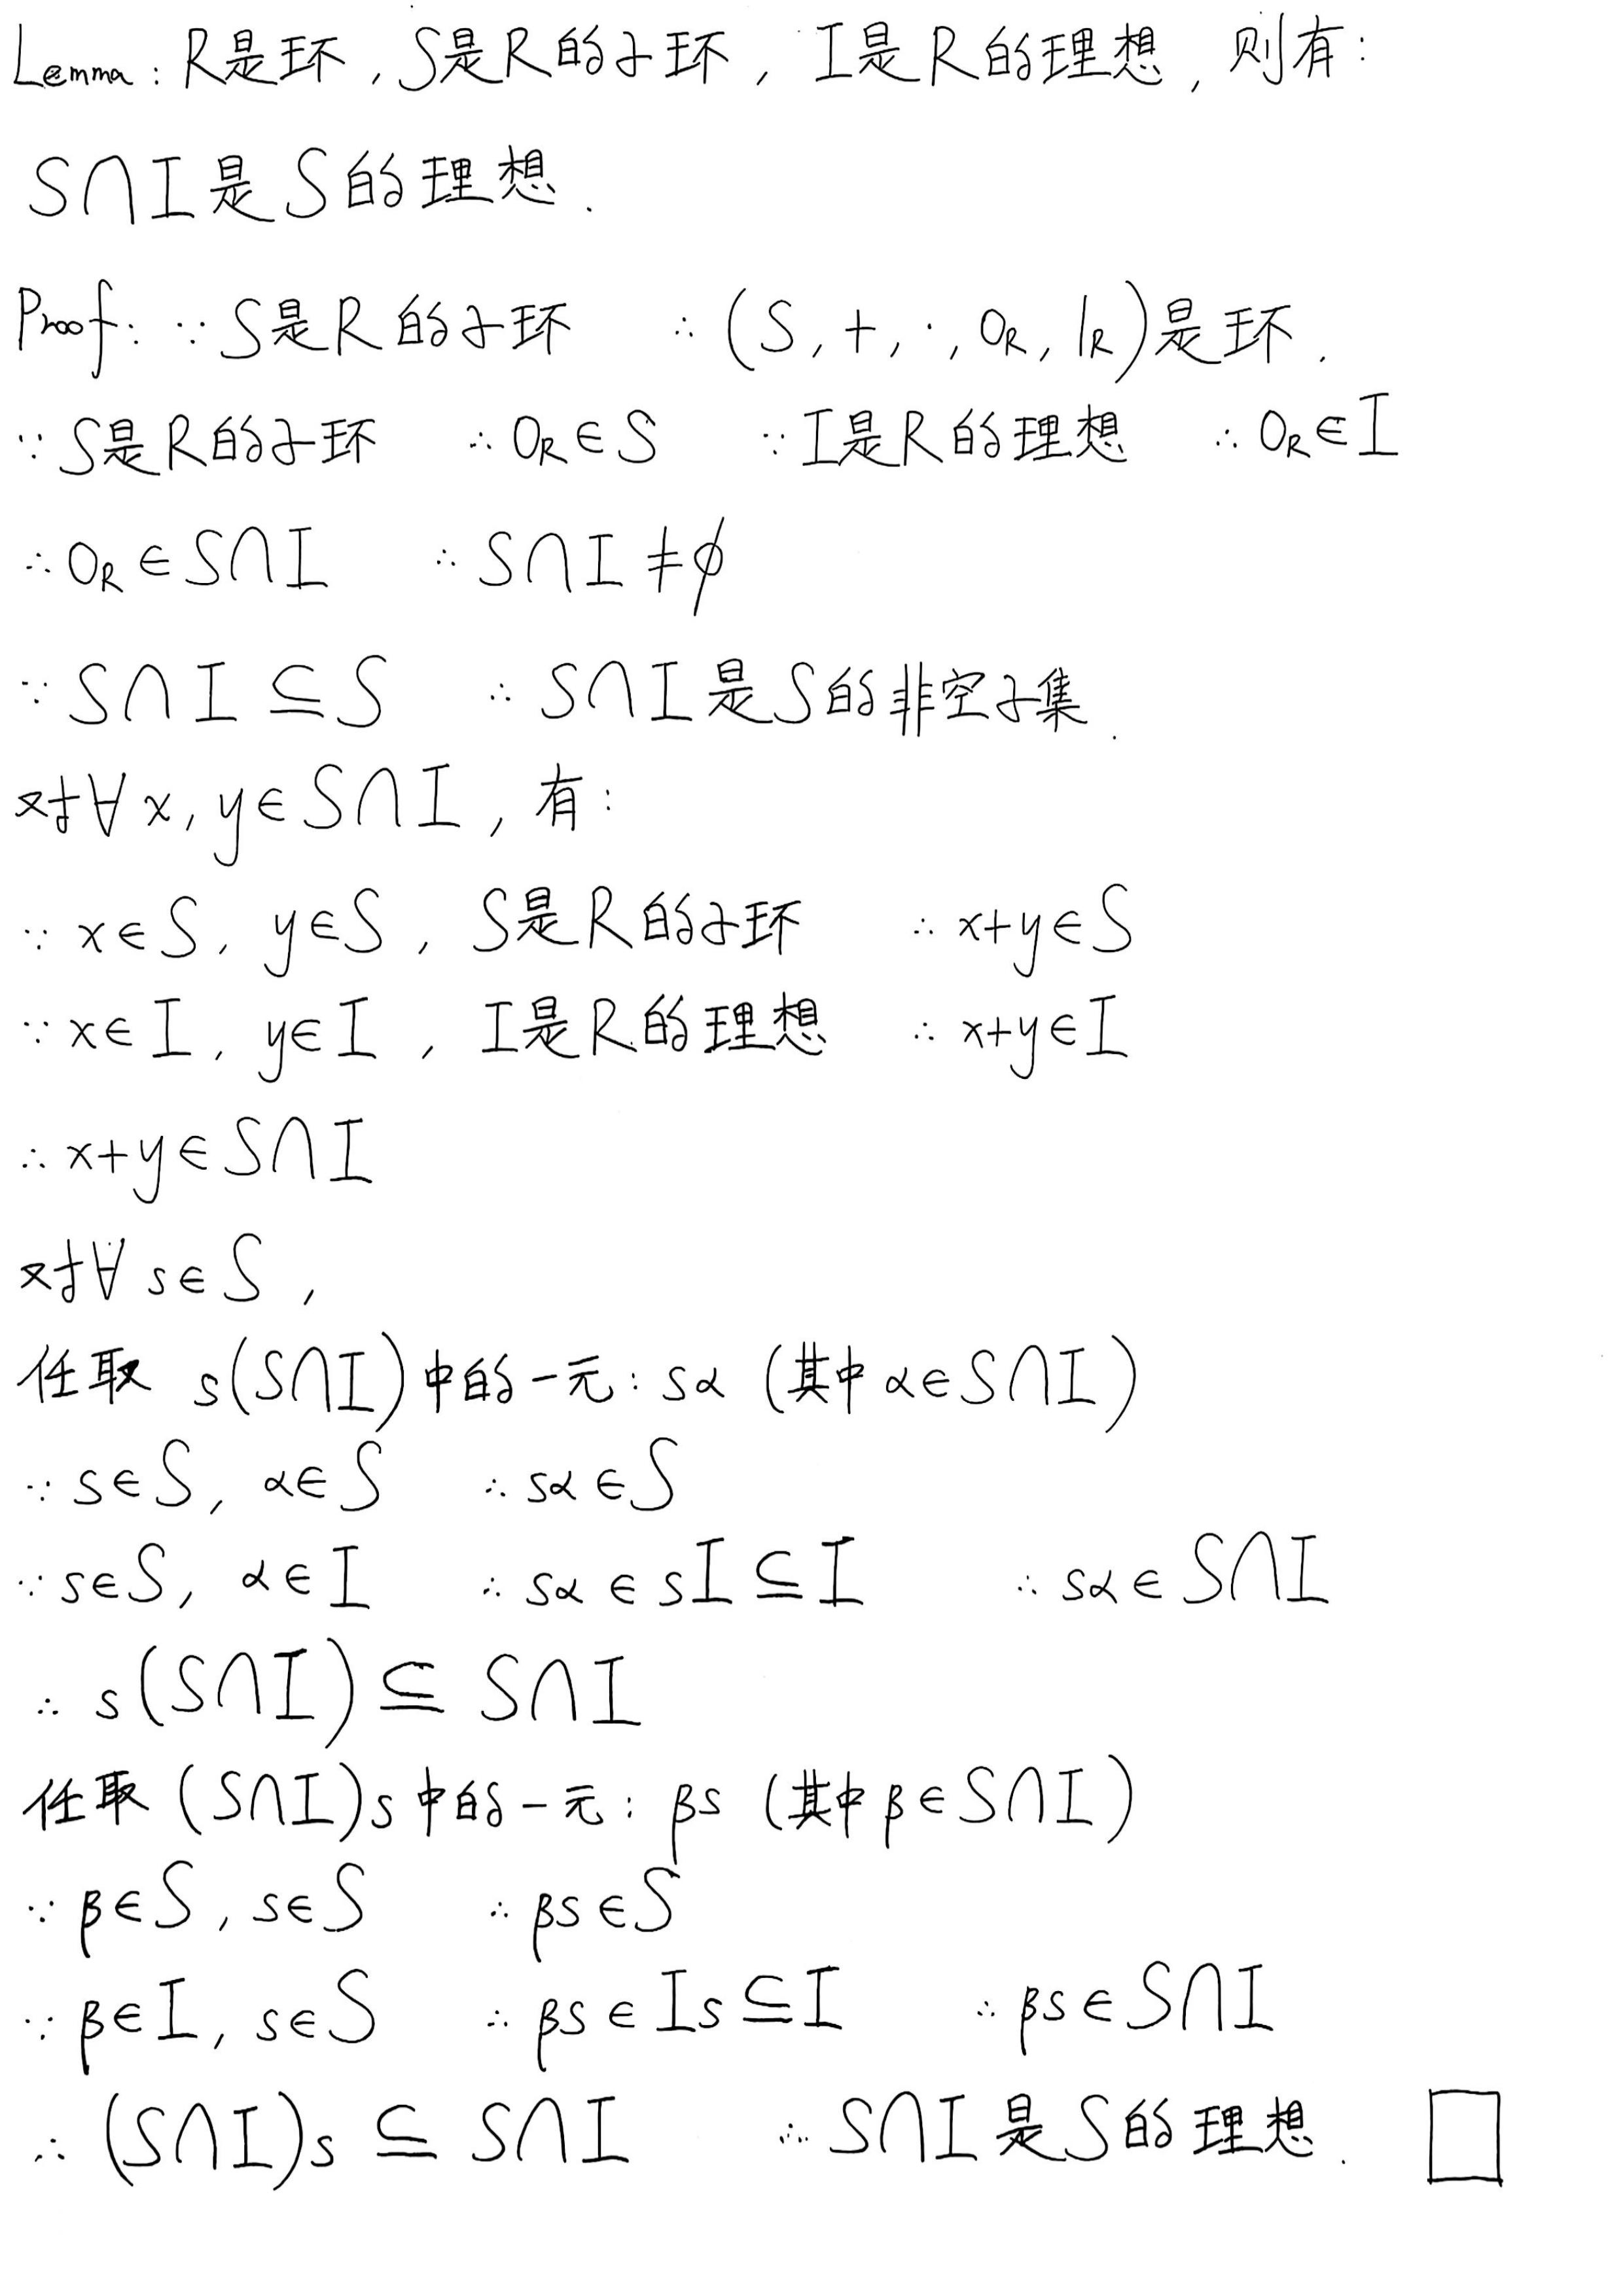 Lemma: R是环, S是R的子环, I是R的理想, 则有:
S∩I是S的理想.
Proof: ∵S是R的子环 ∴(S, +, ·, 0_R, 1_R)是环.
∵S是R的子环 ∴0_R∈S ∵I是R的理想 ∴0_R∈I
∴0_R∈S∩I ∴S∩I≠∅
∵S∩I⊆S ∴S∩I是S的非空子集.
对∀x, y∈S∩I, 有:
∵x∈S, y∈S, S是R的子环 ∴x+y∈S
∵x∈I, y∈I, I是R的理想 ∴x+y∈I
∴x+y∈S∩I
对∀s∈S,
任取 s(S∩I)中的一元: sα (其中α∈S∩I)
∵s∈S, α∈S ∴sα∈S
∵s∈S, α∈I ∴sα∈sI⊆I ∴sα∈S∩I
∴s(S∩I)⊆S∩I
任取 (S∩I)s中的一元: βs (其中β∈S∩I)
∵β∈S, s∈S ∴βs∈S
∵β∈I, s∈S ∴βs∈Is⊆I ∴βs∈S∩I
∴(S∩I)s⊆S∩I ∴S∩I是S的理想. □